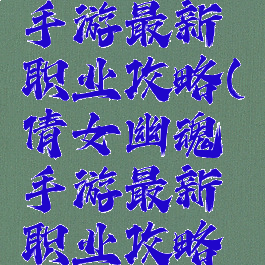 手游最新
职业攻略(
倩女幽魂
手游最新
职业攻略